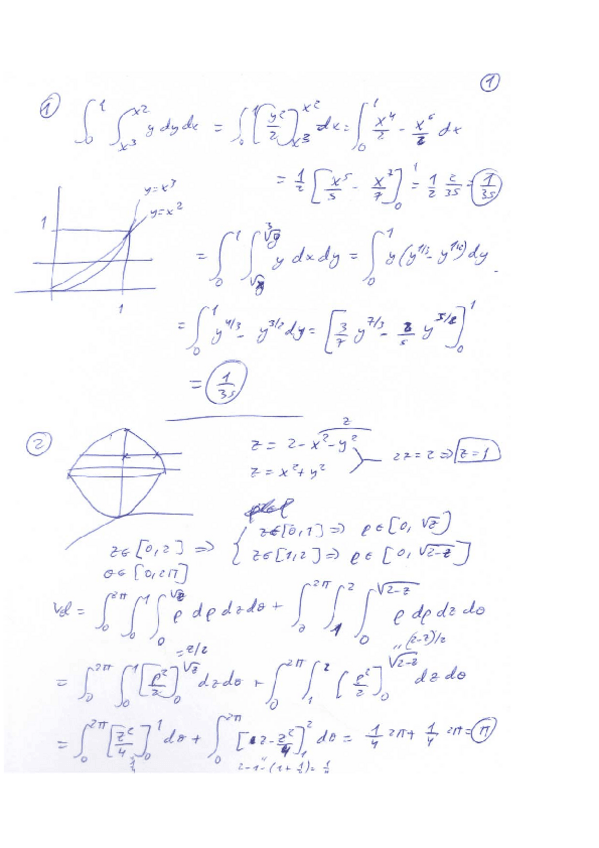 ①
① ∫₀¹ ∫_{x³}^{x²} y dy dx = ∫₀¹ [y²/2]_{x³}^{x²} dx = ∫₀¹ x⁴/2 - x⁶/2 dx
= 1/2 [x⁵/5 - x⁷/7]₀¹ = 1/2 2/35 = 1/35
y=x³
y=x²
1
1
= ∫₀¹ ∫_{√y}^{³√y} y dx dy = ∫₀¹ y(y^{1/3} - y^{1/2}) dy
= ∫₀¹ y^{4/3} - y^{3/2} dy = [3/7 y^{7/3} - 2/5 y^{5/2}]₀¹
= 1/35
②
z = 2 - x² - y²
z
z = x² + y²
2z = 2 ⇒ z = 1
z∈[0,2] ⇒ { z∈[0,1] ⇒ ρ∈[0, √z]
z∈[1,2] ⇒ ρ∈[0, √2-z]
θ∈[0,2π]
Vol = ∫₀^{2π} ∫₀¹ ∫₀^{√z} ρ dρ dz dθ + ∫₀^{2π} ∫₁² ∫₀^{√2-z} ρ dρ dz dθ
= z/2
(2-z)/2
= ∫₀^{2π} ∫₀¹ [ρ²/2]₀^{√z} dz dθ + ∫₀^{2π} ∫₁² [ρ²/2]₀^{√2-z} dz dθ
= ∫₀^{2π} [z²/4]₀¹ dθ + ∫₀^{2π} [z - z²/4]₁² dθ = 1/4 2π + 1/4 2π = π
1/4